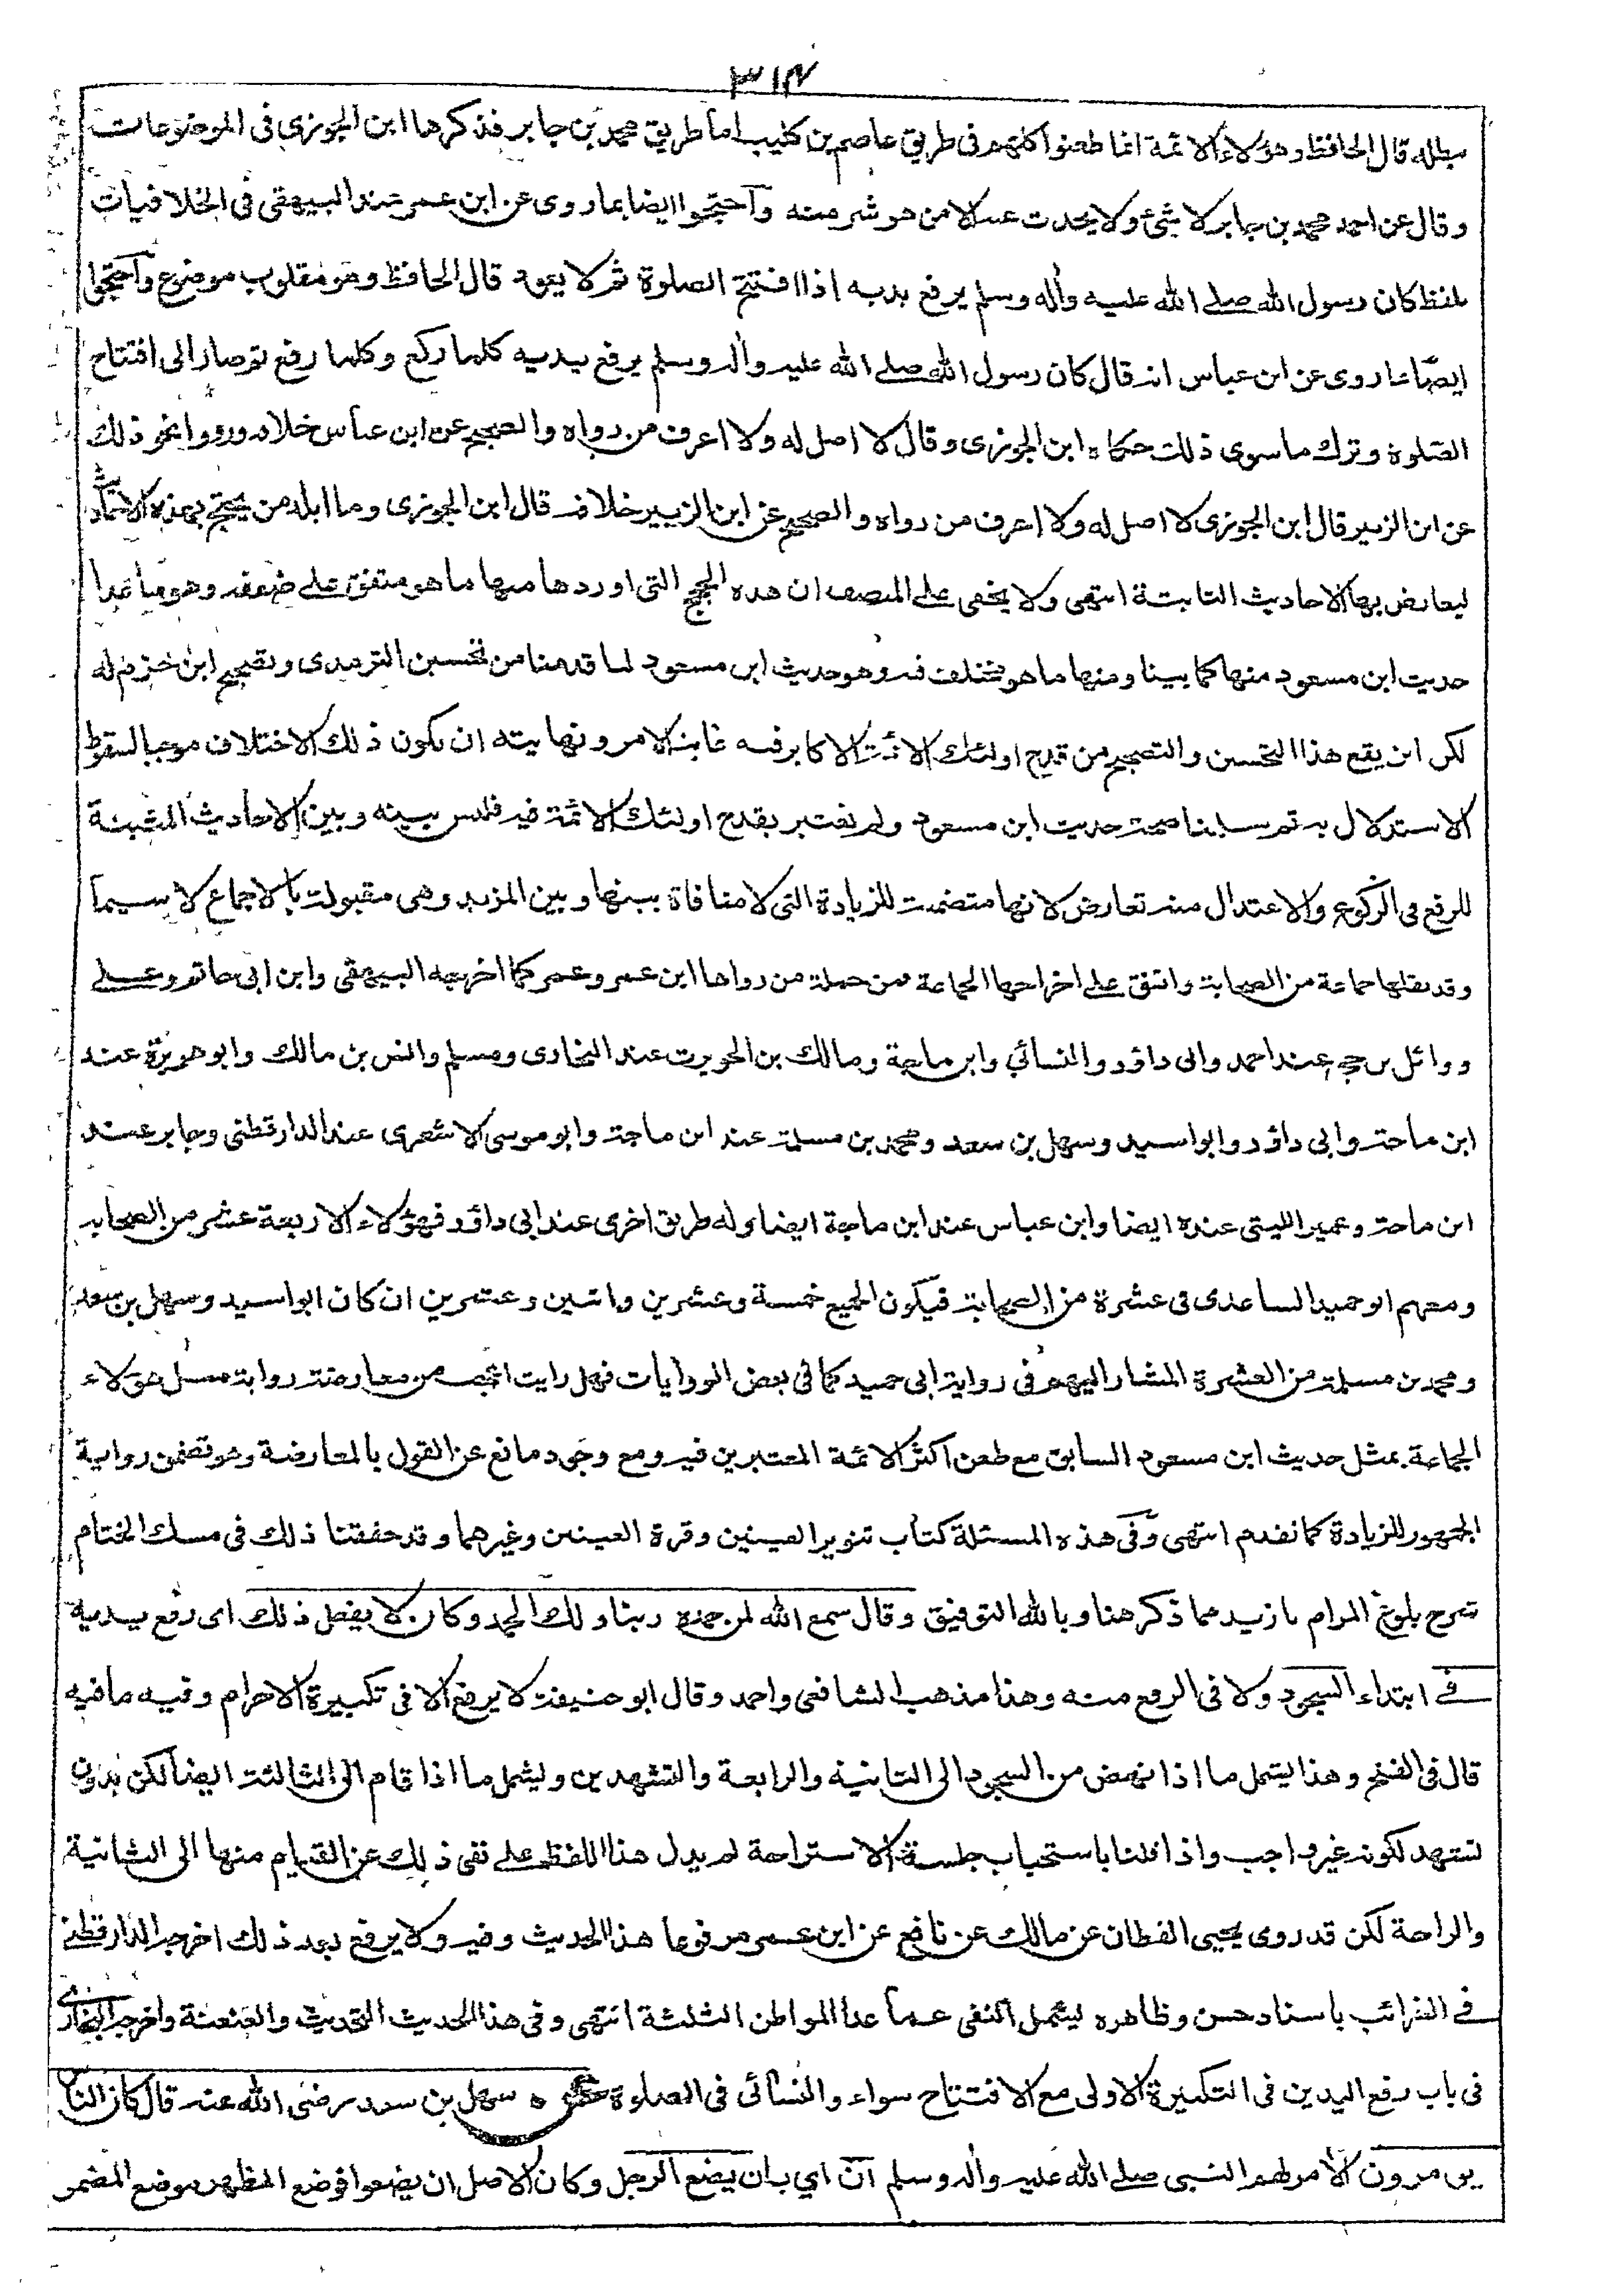 ٣١٧
يبطله قال الحافظ وهؤلاء الائمة انما طعنوا كلهم فى طريق عاصم بن كليب اما طريق محمد بن جابر فذكرها ابن الجوزى فى الموضوعات
وقال عن احمد محمد بن جابر لا شئ ولا يحدث عنه الا من هو شر منه وآحتجوا ايضا بما روى عن ابن عمر عند البيهقى فى الخلافيات
بلفظ كان رسول الله صلى الله عليه وأله وسلم يرفع يديه اذا افتتح الصلوة ثم لا يعود قال الحافظ وهو مقلوب موضوع وآحتجوا
ايضا بما روى عن ابن عباس انه قال كان رسول الله صلى الله عليه وأله وسلم يرفع يديه كلما ركع وكلما رفع ثم صار الى افتتاح
الصلوة وترك ما سوى ذلك حكاه ابن الجوزى وقال لا اصل له ولا اعرف من رواه والصحيح عن ابن عباس خلافه ورووا نحو ذلك
عن ابن الزبير قال ابن الجوزى لا اصل له ولا اعرف من رواه والصحيح عن ابن الزبير خلافه قال ابن الجوزى وما ابله من يحتج بهذه الاحاديث
ليعارض بها الاحاديث الثابتة انتهى ولا يخفى على المنصف ان هذه الحجج التى اوردها منها ما هو متفق على ضعفه وهو ما عدا
حديث ابن مسعود منها كما بينا ومنها ما هو مختلف فيه وهو حديث ابن مسعود لما قدمنا من تحسين الترمذى وتصحيح ابن حزم له
لكن اين يقع هذا التحسين والتصحيح من قدح اولئك الائمة الاكابر فيه غاية الامر ونهايته ان يكون ذلك الاختلاف موجبا لسقوط
الاستدلال به ثم سلمنا صحة حديث ابن مسعود ولم نعتبر بقدح اولئك الائمة فيه فليس بينه وبين الاحاديث المثبتة
للرفع فى الركوع والاعتدال منه تعارض لانها متضمنة للزيادة التى لا منافاة بينها وبين المزيد وهى مقبولة بالاجماع لا سيما
وقد نقلها جماعة من الصحابة واتفق على اخراجها الجماعة فمن جملة من رواها ابن عمر وعمر كما اخرجه البيهقى وابن ابى حاتم وعلى
ووائل بن حجر عند احمد وابى داؤد والنسائي وابن ماجة ومالك بن الحويرث عند البخارى ومسلم وانس بن مالك وابو هريرة عند
ابن ماجة وابى داؤد وابو اسيد وسهل بن سعد ومحمد بن مسلمة عند ابن ماجة وابو موسى الاشعرى عند الدارقطنى وجابر عند
ابن ماجة وعمير الليثى عنده ايضا وابن عباس عند ابن ماجة ايضا وله طريق اخرى عند ابى داؤد فهؤلاء الاربعة عشر من الصحابة
ومعهم ابو حميد الساعدى فى عشرة من الصحابة فيكون الجميع خمسة وعشرين واثنين وعشرين ان كان ابو اسيد وسهل بن سعد
ومحمد بن مسلمة من العشرة المشار اليهم فى رواية ابى حميد كما فى بعض الروايات فهل رايت اعجب من معارضة رواية مثل هؤلاء
الجماعة بمثل حديث ابن مسعود السابق مع طعن اكثر الائمة المعتبرين فيه ومع وجود مانع عن القول بالمعارضة وهو تضمن رواية
الجمهور للزيادة كما تقدم انتهى وفى هذه المسئلة كتاب تنوير العينين وقرة العينين وغيرهما وقد حققنا ذلك فى مسك الختام
شرح بلوغ المرام بازيد مما ذكر هنا وبالله التوفيق وقال سمع الله لمن حمده ربنا ولك الحمد وكان لا يفعل ذلك اى رفع يديه
فى ابتداء السجود ولا فى الرفع منه وهذا مذهب الشافعى واحمد وقال ابو حنيفة لا يرفع الا فى تكبيرة الاحرام وفيه ما فيه
قال فى الفتح وهذا يشمل ما اذا نهض من السجود الى الثانية والرابعة والتشهدين ويشمل ما اذا قام الى الثالثة ايضا لكن بدون
تشهد لكونه غير واجب واذا قلنا باستحباب جلسة الاستراحة لم يدل هذا اللفظ على نفى ذلك عن القيام منها الى الثانية
والرابعة لكن قد روى يحيى القطان عن مالك عن نافع عن ابن عمر مرفوعا هذا الحديث وفيه ولا يرفع بعد ذلك اخرجه الدارقطنى
فى الغرائب باسناد حسن وظاهره يشمل النفى عما عدا المواطن الثلثة انتهى وفى هذا الحديث التحديث والعنعنة واخرجه البخارى
فى باب رفع اليدين فى التكبيرة الاولى مع الافتتاح سواء والنسائى فى الصلوة عن سهل بن سعد رضى الله عنه قال كان الناس
يؤمرون الأمر لهم النبى صلى الله عليه وأله وسلم ان اي بان يضع الرجل وكان الاصل ان يضعوا فوضع المظهر موضع المضمر